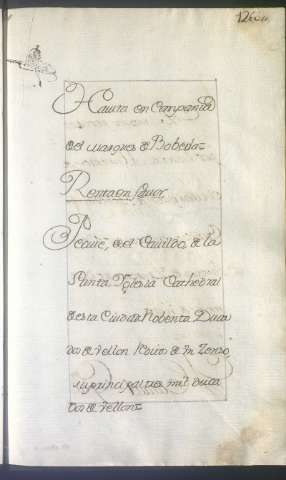 Hauita en Compania
del Marques de Bobeda=
Renta en fauor
Pctuē, de el Cauildo, de la
Santa Yglesia Cathedral
de esta Ciudad Nobenta Duca
dos de vellon Reditos de Zenso
su principal tres mil duca
dos de vellon=